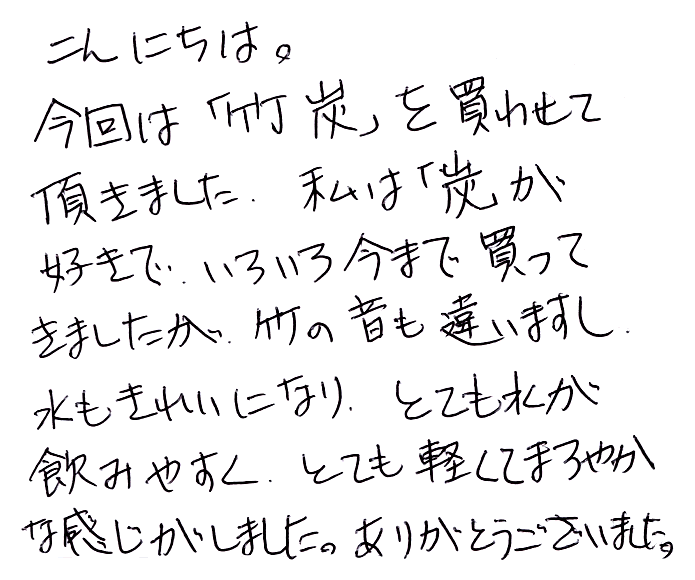 こんにちは。
今回は「竹炭」を買わせて
頂きました. 私は「炭」が
好きで. いろいろ今まで買って
きましたが. 竹の音も違いますし.
水もきれいになり. とても水が
飲みやすく. とても軽くてまろやか
な感じがしました。ありがとうございました。